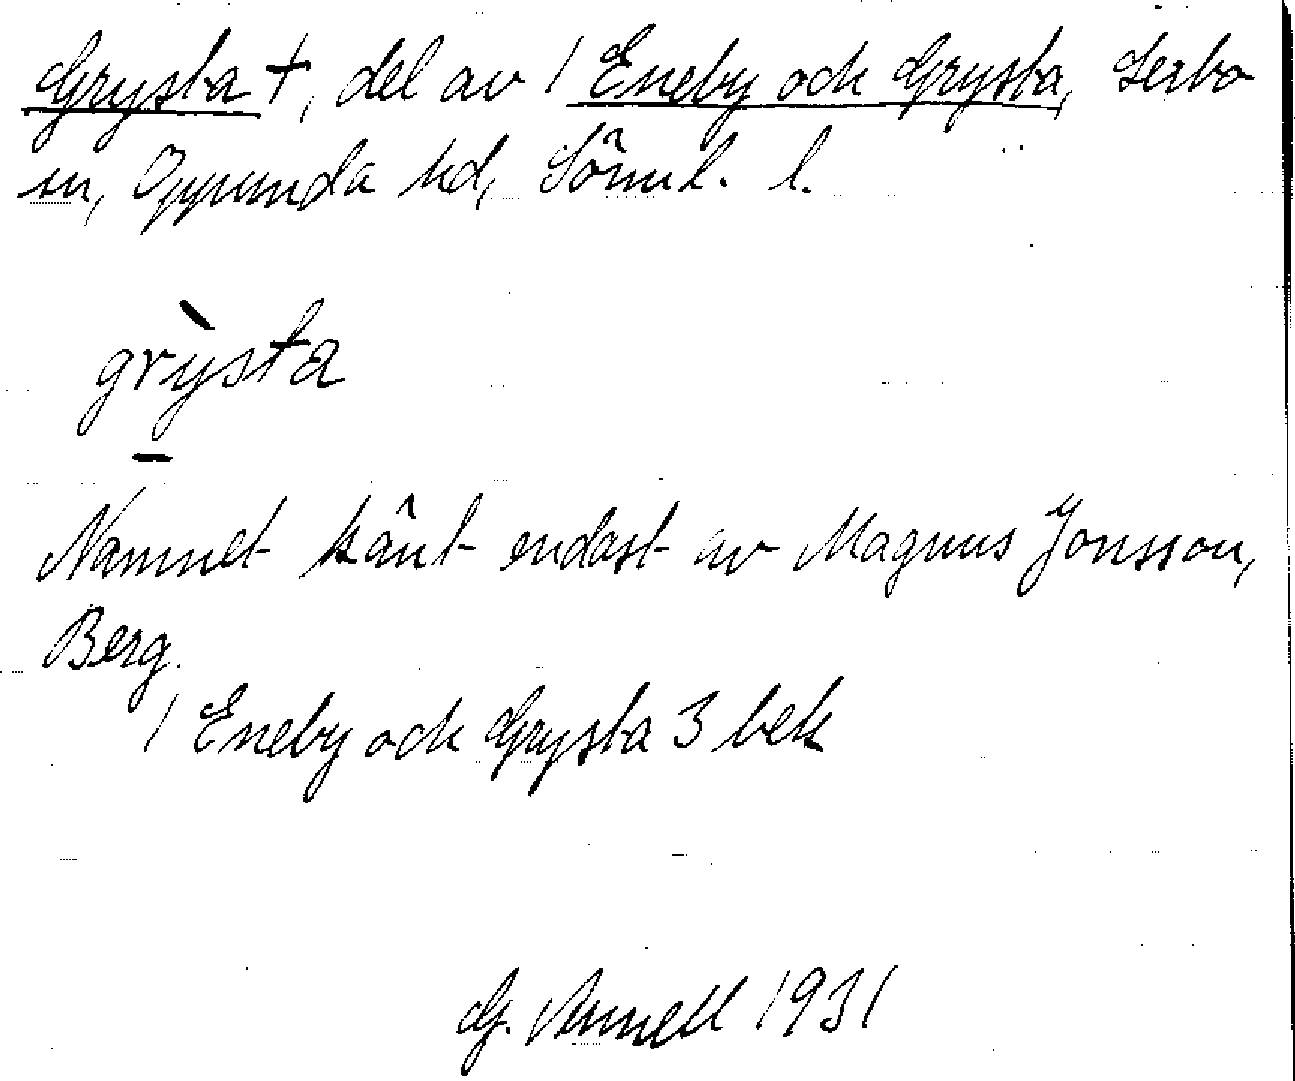 Grysta †, del av 1 Eneby och Grysta, Lerbo
sn, Oppunda hd, Söml. l.
grỳsta
Namnet känt endast av Magnus Jonsson,
Berg.
1 Eneby och Grysta 3 bek
G. 1931